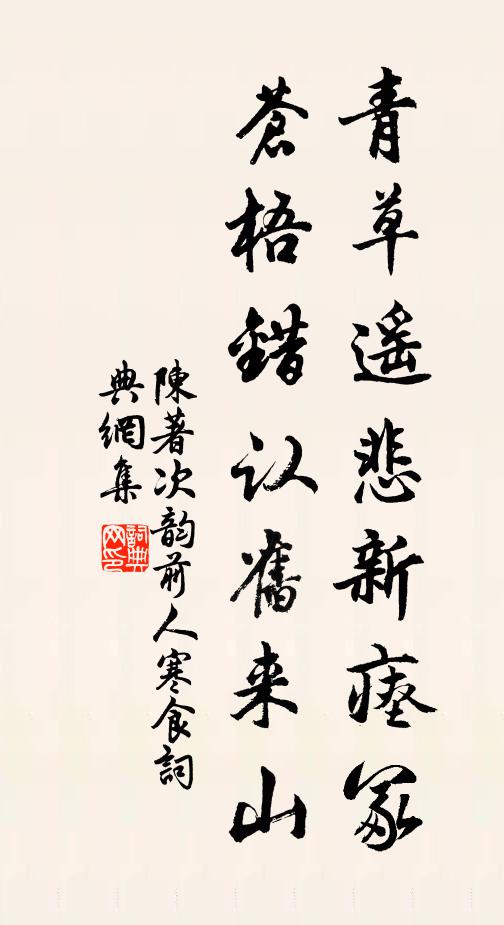 青草遥悲新瘞冢
蒼梧錯认舊来山
陳著次韵前人寒食詞
典網集
詞典網印